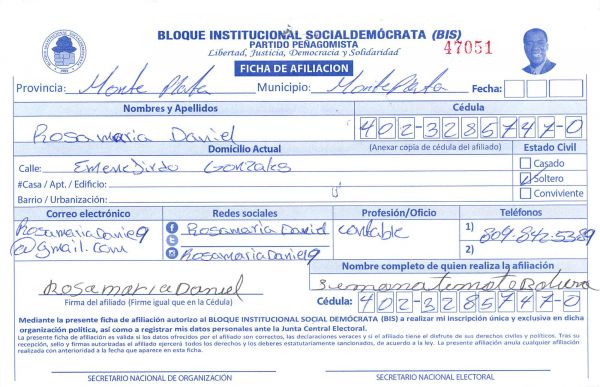 BLOQUE INSTITUCIONAL SOCIALDEMÓCRATA (BIS)
PARTIDO PEÑAGOMISTA
Libertad, Justicia, Democracia y Solidaridad
47051
FICHA DE AFILIACION
Provincia: Monte Plata Municipio: Monte Plata Fecha:
Nombres y Apellidos Cédula
Rosamaria Daniel 402-3285747-0
Domicilio Actual (Anexar copia de cédula del afiliado) Estado Civil
Calle: Gonzales Casado
#Casa / Apt. / Edificio: Soltero
Barrio / Urbanización: Conviviente
Correo electrónico Redes sociales Profesión/Oficio Teléfonos
Rosamaria Daniel9 Rosamaria Daniel contable 1)
@gmail.com RosamariaDaniel9 2) 809-842-5389
Nombre completo de quien realiza la afiliación
Rosamaria Daniel
Firma del afiliado (Firme igual que en la Cédula) Cédula: 402-3285747-0
Mediante la presente ficha de afiliación autorizo al BLOQUE INSTITUCIONAL SOCIAL DEMÓCRATA (BIS) a realizar mi inscripción única y exclusiva en dicha
organización política, así como a registrar mis datos personales ante la Junta Central Electoral.
La presente ficha de afiliación es válida si los datos ofrecidos por el afiliado son correctos, las declaraciones veraces y si el afiliado tiene el disfute de sus derechos civiles y políticos. Tras su
recepción, sello y firmas autorizadas el afiliado ejercerá todos los derechos y los deberes estatutariamente sancionados, de acuerdo a la ley. La presente afiliación anula cualquier afiliación
realizada con anterioridad a la fecha que aparece en esta ficha.
SECRETARIO NACIONAL DE ORGANIZACIÓN SECRETARIO NACIONAL ELECTORAL